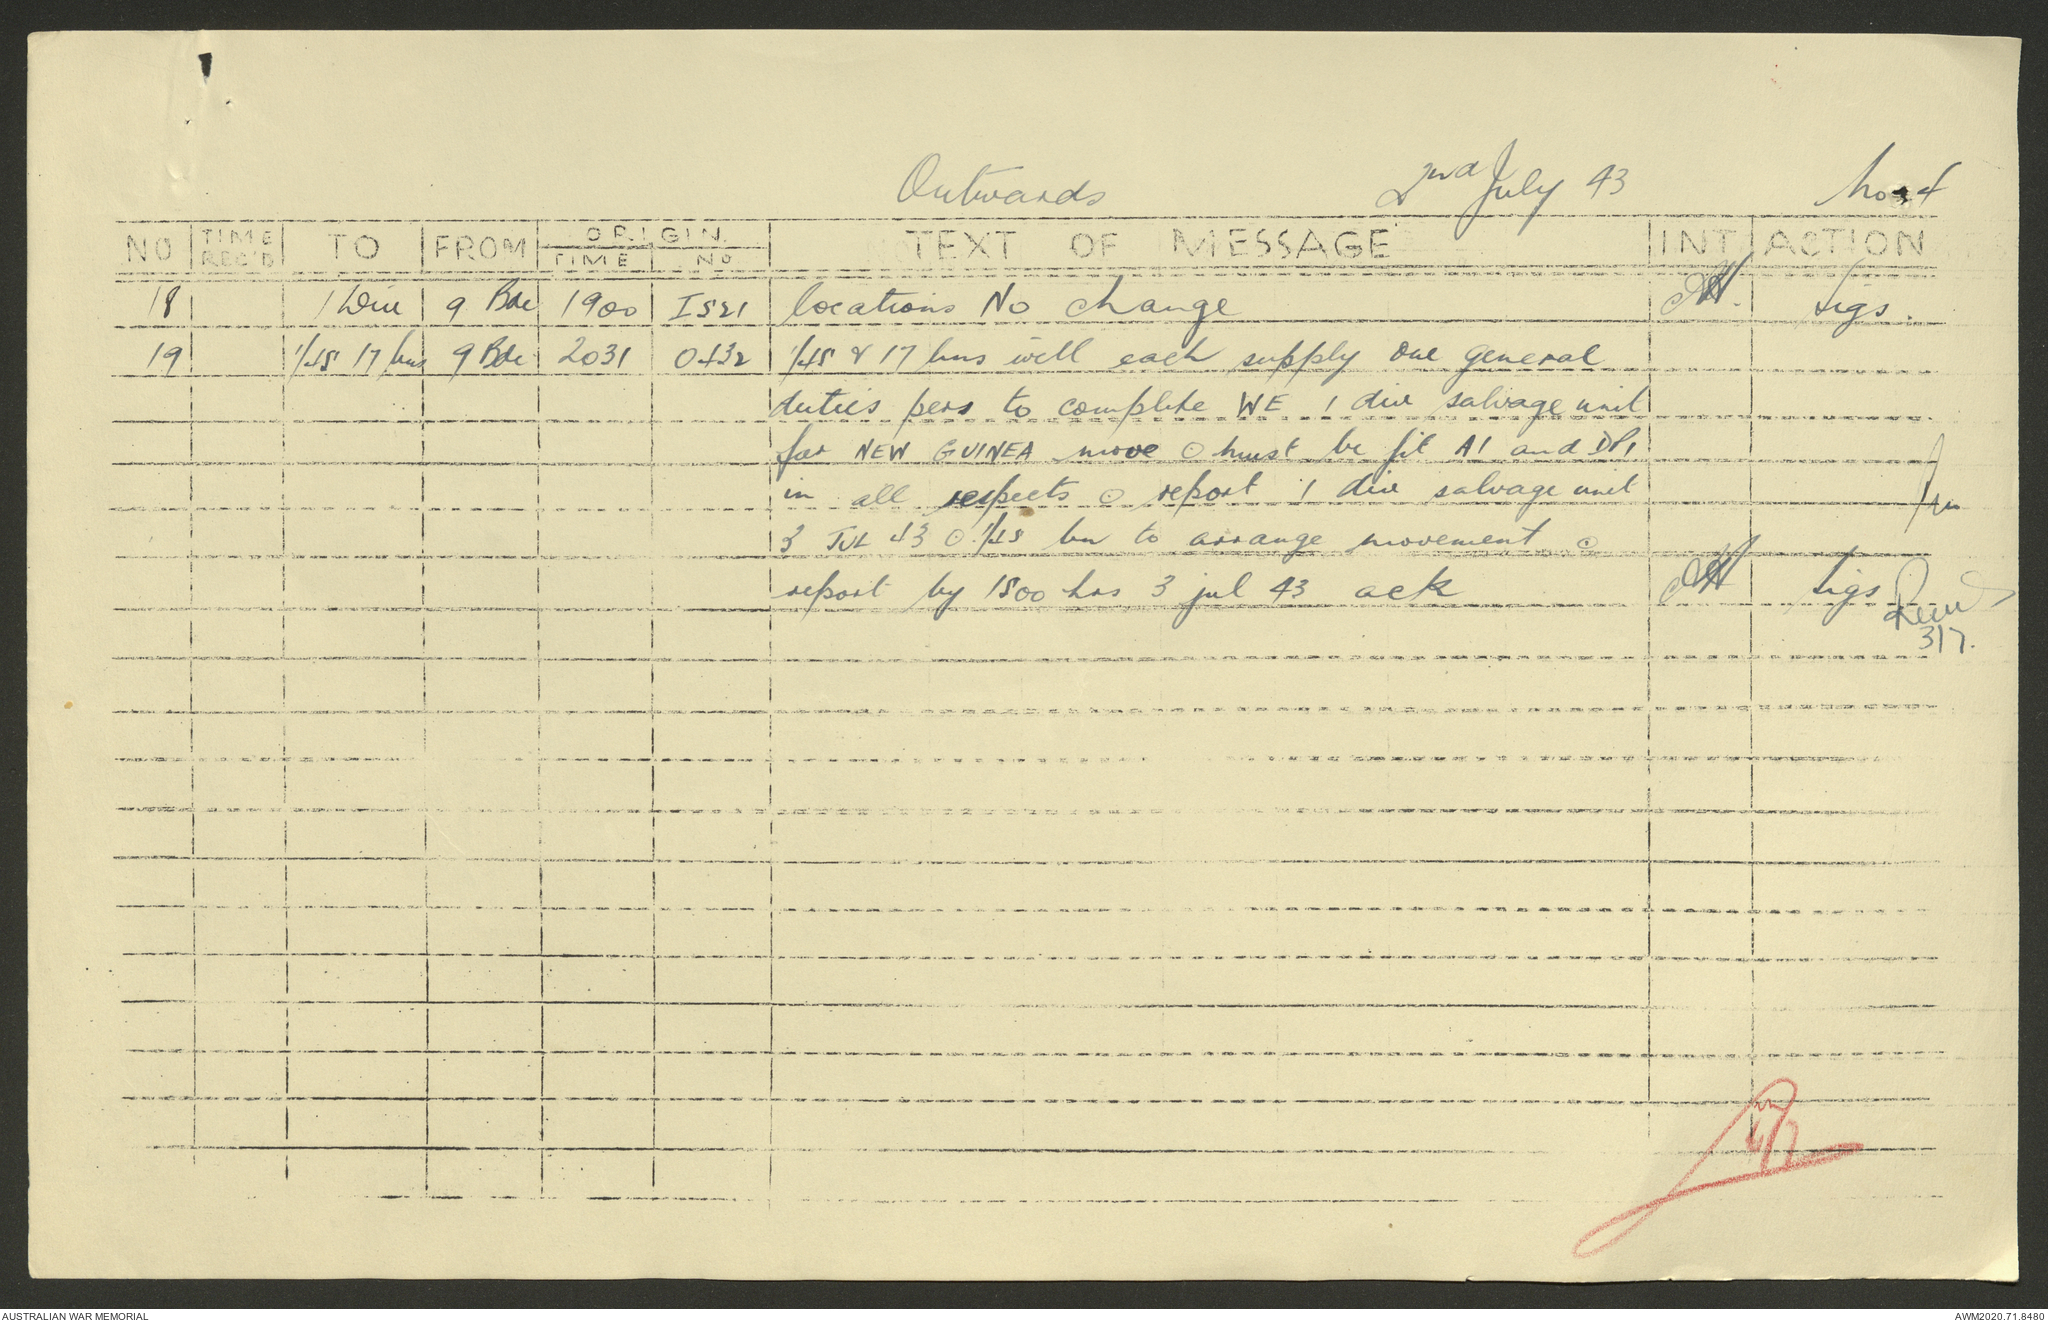 Outwards 2nd July 43 No. 4
NO TIME REC'D TO FROM ORIGIN TIME NO TEXT OF MESSAGE INT ACTION
18 1 Div 9 Bde 1900 I521 locations No change Sigs.
19 1/45 17 bns 9 Bde 2031 0432 1/45 & 17 bns will each supply one general
duties pers to complete WE 1 div salvage unit
for NEW GUINEA move ⊙ must be fit A1 and DP1
in all respects ⊙ report 1 div salvage unit
3 JUL 43 ⊙ 1/45 bn to arrange movement ⊙
report by 1800 hrs 3 jul 43 ack Sigs
3/7.
4/7
AUSTRALIAN WAR MEMORIAL AWM2020.71.8480